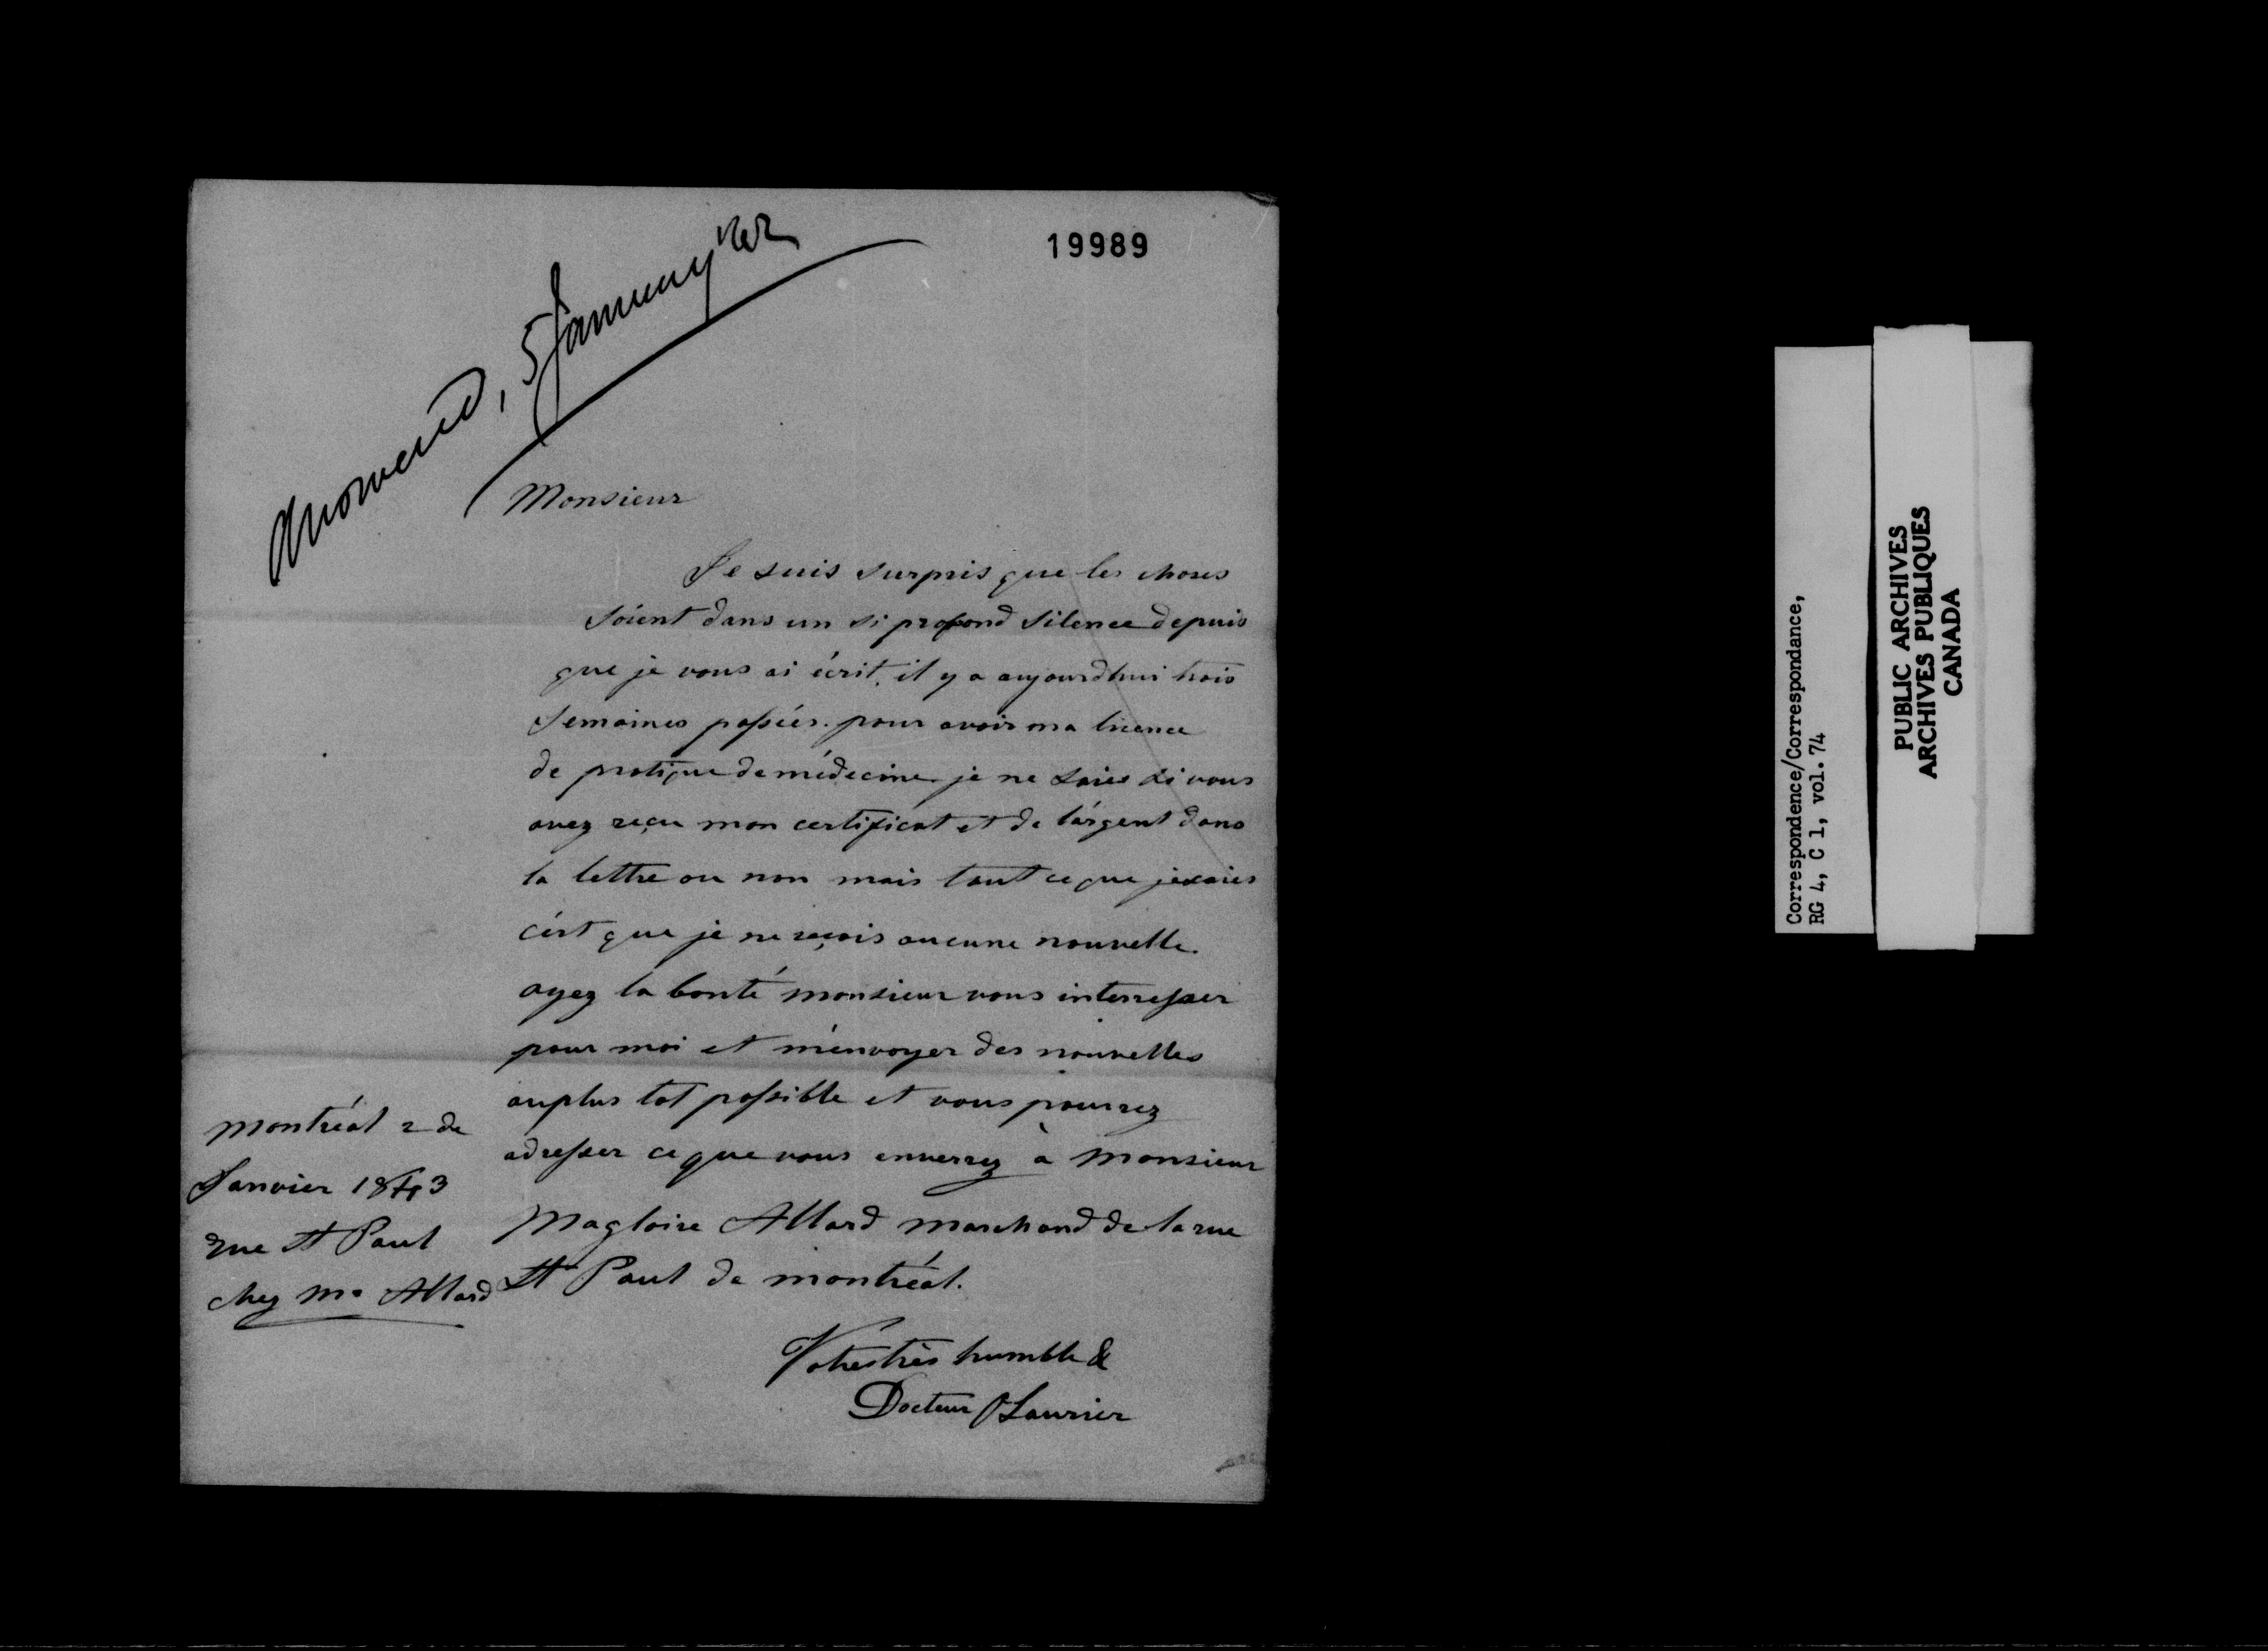 19989
Answered, 5 January
Monsieur
Je suis surpris que les choses
soient dans un si profond silence depuis
que je vous ai écrit, il y a aujourdhui trois
semaines passées. pour avoir ma licence
de pratique de médecine je ne saies si vous
avez reçu mon certificat et de l'argent dans
la lettre ou non mais tout ce que je saies
c'est que je ne reçois aucune nouvelle.
ayez la bonté monsieur vous interresser
pour moi et m'envoyer des nouvelles
au plus tot possible et vous pourrez
adresser ce que vous enverrez à Monsieur
Magloire Allard marchand de la rue
St Paul de montréal.
Votre très humble &
Docteur Laurier
Montréal 2 de
Janvier 1843
rue St Paul
chez Mr Allard
Correspondence/Correspondance,
RG 4, C 1, vol. 74
PUBLIC ARCHIVES
ARCHIVES PUBLIQUES
CANADA